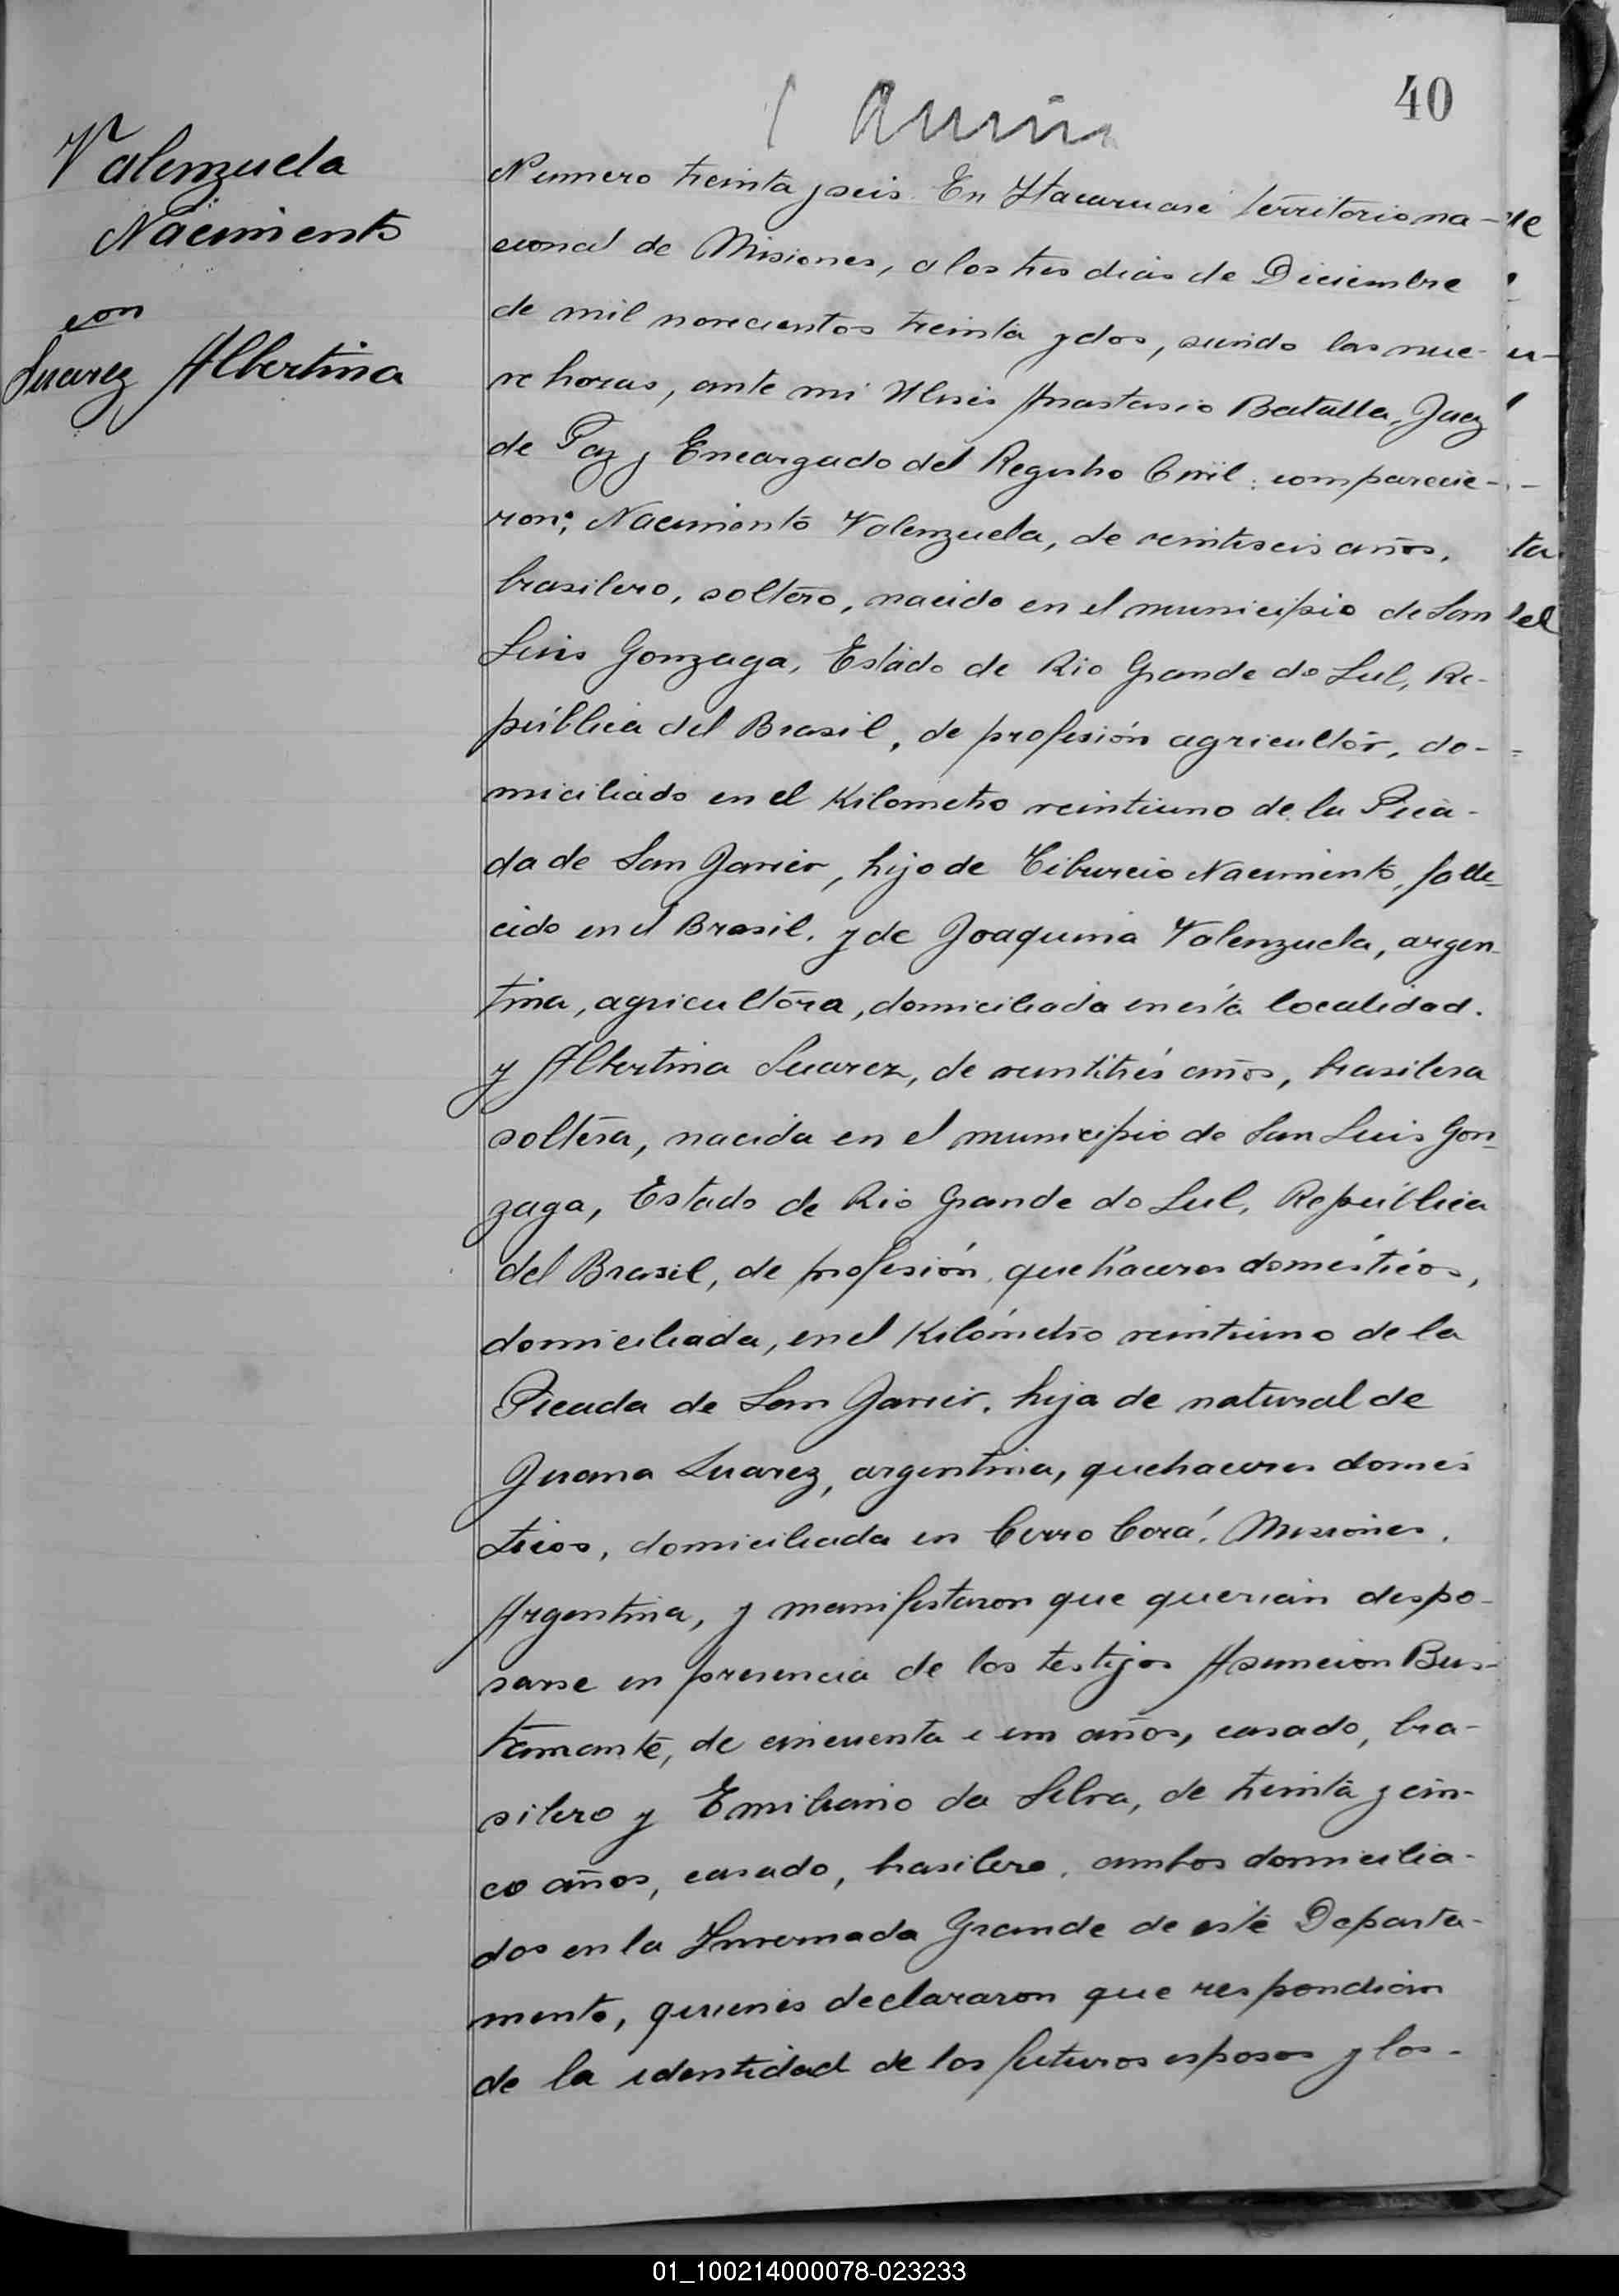 40
Valenzuela
Nacimiento
con
Suarez Albertina
Numero treinta y seis. En Itacaruaré territorio na-
cional de Misiones, a los tres dias de Diciembre
de mil novecientos treinta y dos, siendo las nue-
ve horas, ante mi Ulises Anastasio Batalla, Juez
de Paz y Encargado del Registro Civil: comparecie-
ron: Nacimiento Valenzuela, de veintiseis años,
brasilero, soltero, nacido en el municipio de San
Luis Gonzaga, Estado de Rio Grande do Sul, Re-
pública del Brasil, de profesión agricultor, do-
miciliado en el Kilometro veintiuno de la Pica-
da de San Javier, hijo de Tiburcio Nacimiento, falle-
cido en el Brasil. y de Joaquina Valenzuela, argen-
tina, agricultora, domiciliada en ésta localidad.
y Albertina Suarez, de veintitrés años, brasilera
soltera, nacida en el municipio de San Luis Gon-
zaga, Estado de Rio Grande do Sul, República
del Brasil, de profesión quehaceres domésticos,
domiciliada, en el Kilómetro veintiuno de la
Picada de San Javier. hija de natural de
Juana Suarez, argentina, quehaceres domes
ticos, domiciliada en Cerro Corá. Misiones.
Argentina, y manifestaron que querian despo-
sarse en presencia de los testigos Asuncion Bus-
tamante, de cincuenta e un años, casado, bra-
silero y Emiliano da Silva, de treinta y cin-
co años, casado, brasilero. ambos domicilia-
dos en la Invernada Grande de este Departa-
mento, quienes declararon que respondian
de la identidad de los futuros esposos y los-
01_100214000078-023233